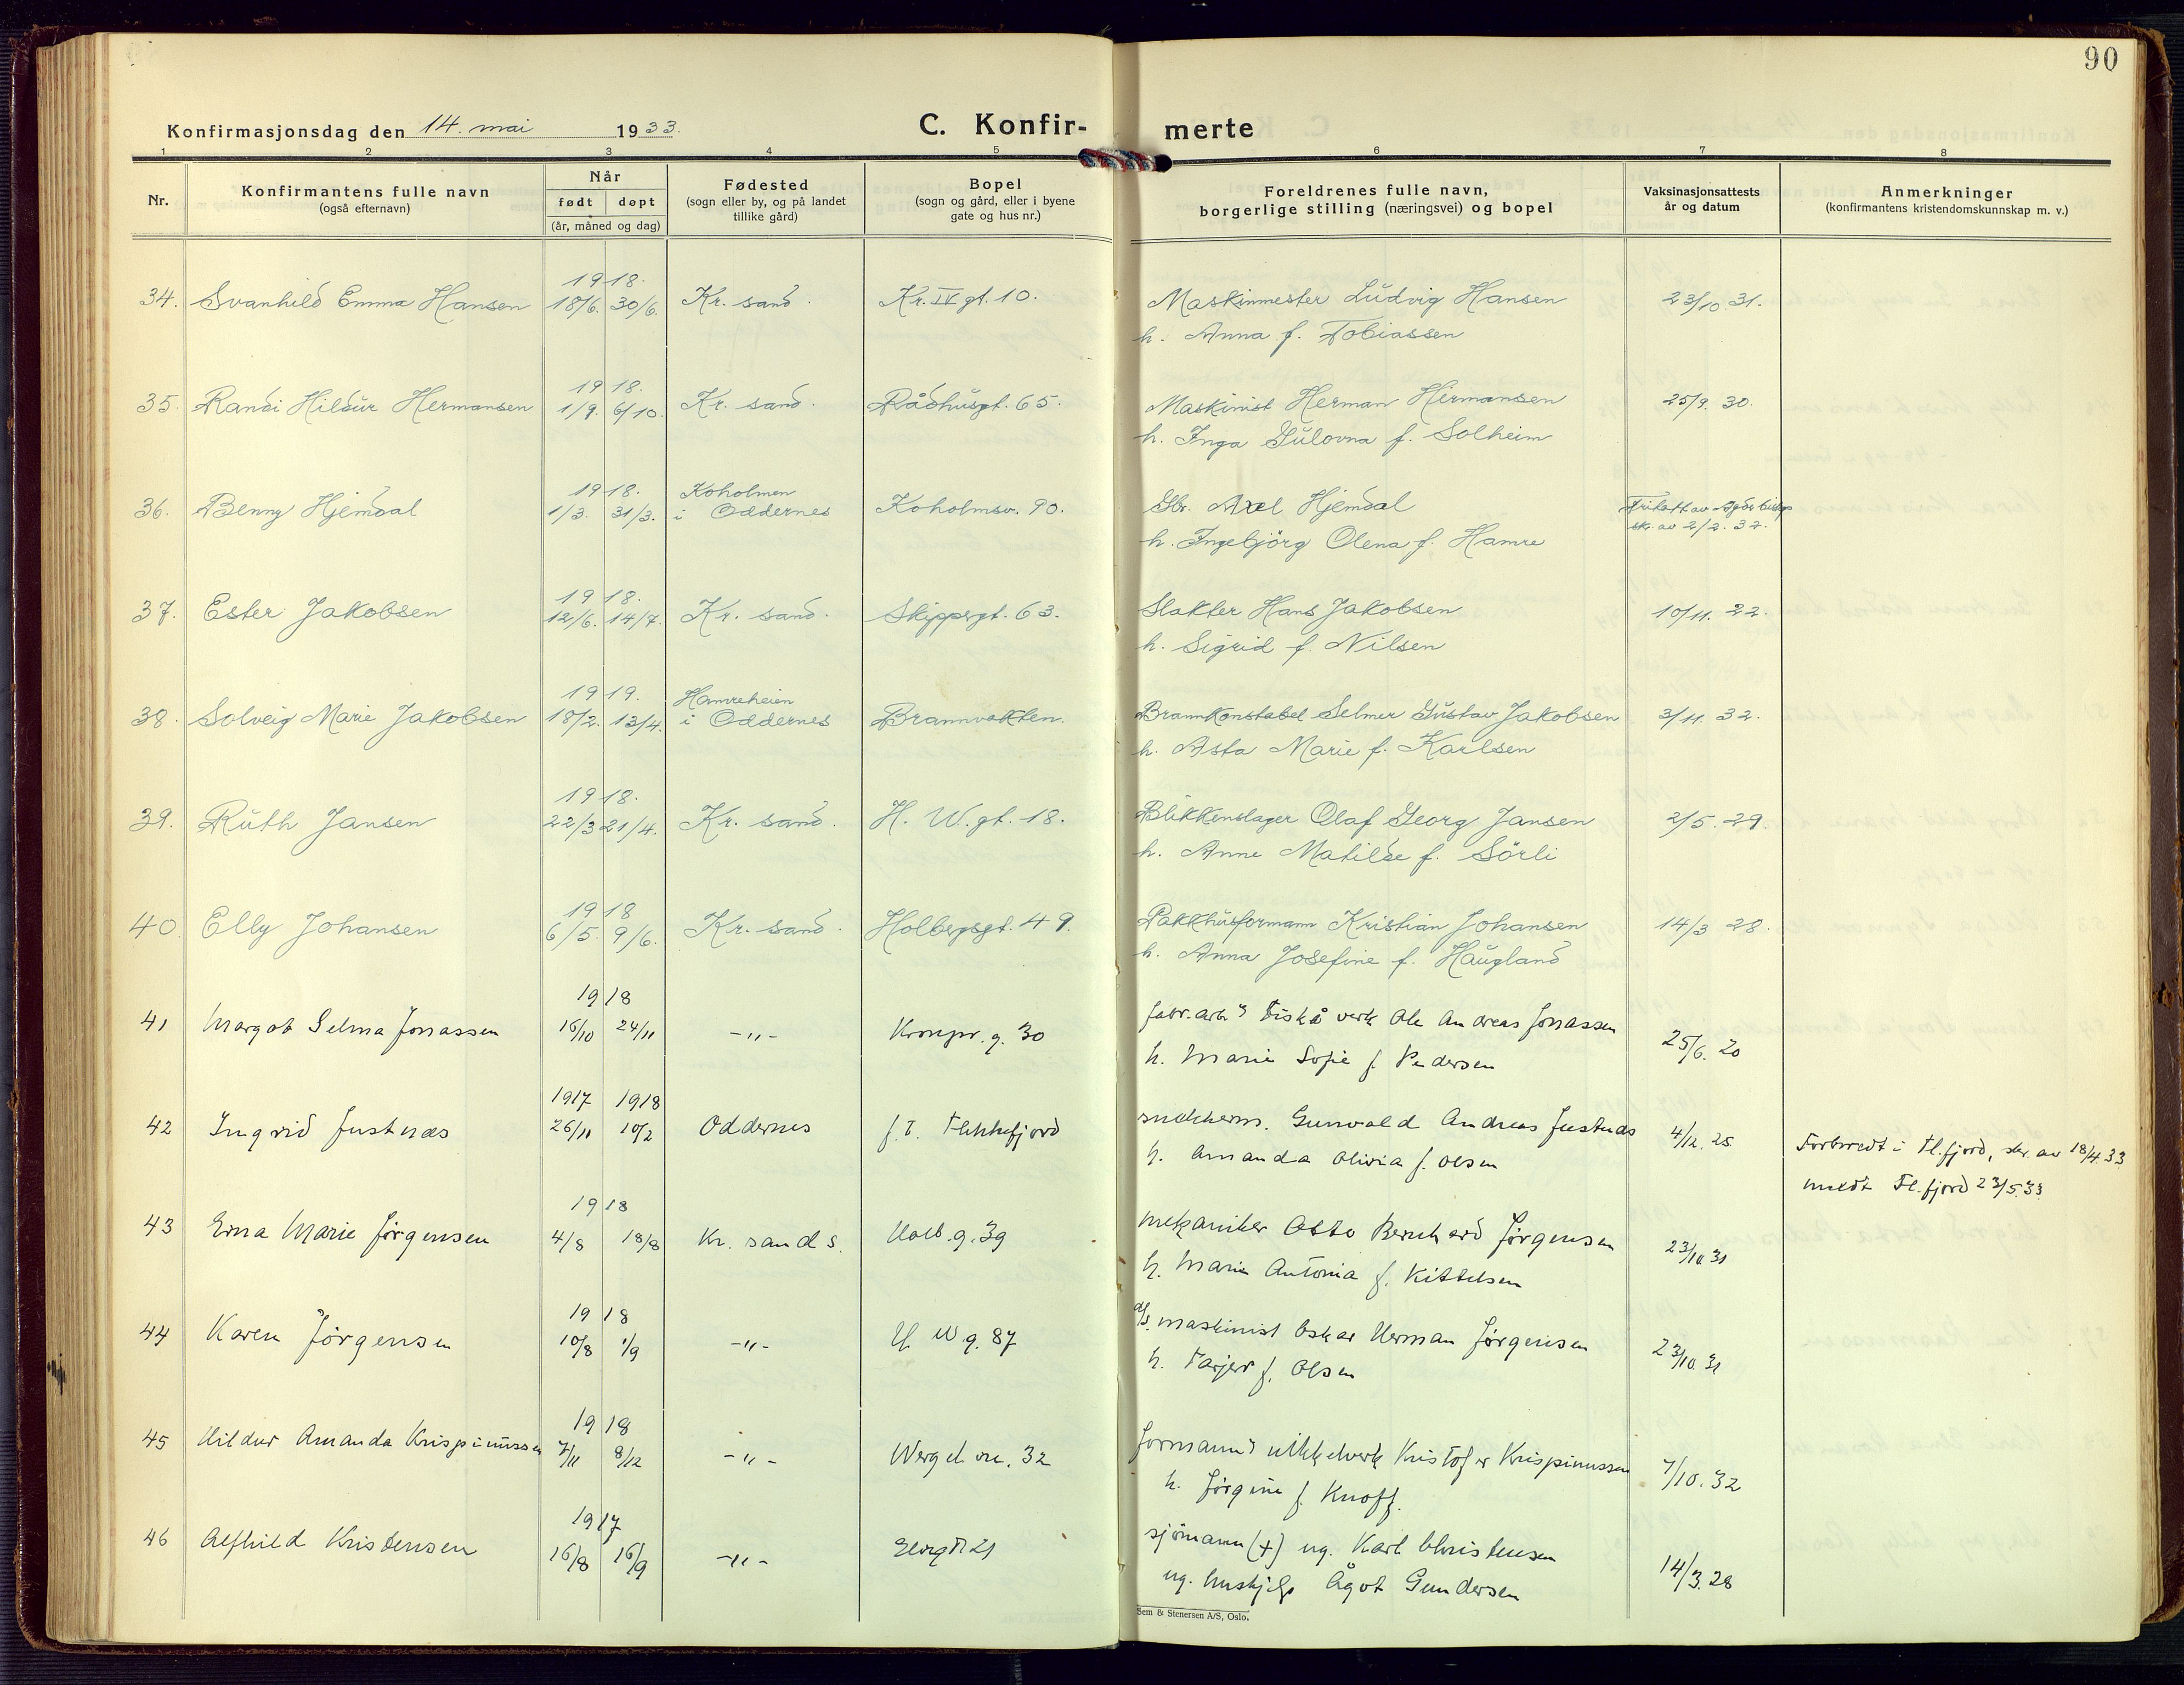 90
Konfirmasjonsdag den 14. mai 1933.
C. Konfir- merte
1 2 3 4 5 6 7 8
Nr.
Konfirmantens fulle navn
(også efternavn)
Når
født døpt
(år, måned og dag)
Fødested
(sogn eller by, og på landet
tillike gård)
Bopel
(sogn og gård, eller i byene
gate og hus nr.)
Foreldrenes fulle navn,
borgerlige stilling (næringsvei) og bopel
Vaksinasjonsattests
år og datum
Anmerkninger
(konfirmantens kristendomskunnskap m. v.)
1918.
34. Svanhild Emma Hansen 18/6. 30/6. Kr. sand. Kr. IV gt. 10. Maskinmester Ludvig Hansen 23/10 31.
h. Anna f. Tobiassen
1918.
35. Randi Hildur Hermansen 1/9. 6/10. Kr. sand. Rådhusgt. 65. Maskinist Herman Hermansen 25/9. 30.
h. Inga Gulovna f. Solheim
1918. Koholmen
36. Benny Hjemdal 1/3. 31/3. i Oddernes Koholmsv. 90. Gbr. Axel Hjemdal Fritatt av Agder bisp
skr. av 2/2. 32.
h. Ingebjörg Olena f. Hamre
1918.
37. Ester Jakobsen 12/6. 14/7. Kr. sand. Skippergt. 63. Slakter Hans Jakobsen 10/11. 22.
h. Sigrid f. Nilsen
1919. Hamreheien
38. Solveig Marie Jakobsen 18/2. 13/4. i Oddernes Brannvakten. Brannkonstabel Selmer Gustav Jakobsen 3/11. 32.
h. Asta Marie f. Karlsen
1918.
39. Ruth Jansen 22/3 21/4. Kr. sand. H. W. gt. 18. Blikkenslager Olaf Georg Jansen 2/5. 29.
h. Anne Matilde f. Sörli
1918
40. Elly Johansen 6/5. 9/6. Kr. sand. Holbergsgt. 49. Pakkhusformann Kristian Johansen 14/3 28.
h. Anna Josefine f. Haugland
1918
41 Margot Selma Jonassen 16/10 24/11 -"- Kronpr. g. 30 fabr. arb. Fiskå verk Ole Andreas Jonassen 25/6. 20
h. Marie Sofie f. Pedersen
1917 1918
42 Ingrid Justnæs 26/11 10/2 Oddernes f. T. Flekkefjord snekkerm. Gunvald Andreas Justnæs 4/12. 25 Forberedt i Fl.fjord, skr. av 18/4 33
h. Amanda Olivia f. Olsen meldt Fl.fjord 23/5.33
1918
43 Erna Marie Jörgensen 4/8 18/8 Kr. sand s. Holb. g. 39 mekaniker Otto Bernhard Jörgensen 23/10 31
h. Marie Antonia f. Kittelsen
1918
44 Karen Jörgensen 10/8 1/9 -"- H W g. 87 d/s. maskinist Oskar Herman Jörgensen 23/10 31
h. Tarjer f. Olsen
1918
45 Hildur Amanda Krispinussen 7/11 8/12 -"- Wergel. v. 32 formann nikkelverk Kristofer Krispinussen 7/10. 32
h. Jörgine f. Knoff.
1917
46 Alfhild Kristensen 16/8 16/9 -"- sjömann (+) ug. Karl Christensen 14/3. 28
ug. hushjelp Ågot Gundersen
Sem & Stenersen A/S, Oslo.